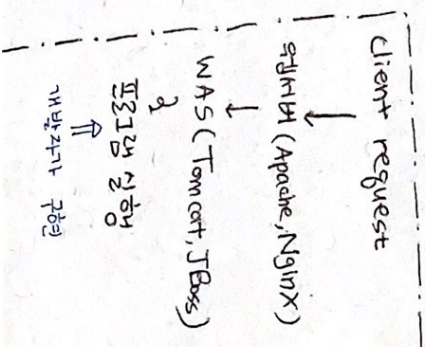 Client request
↓
웹서버 (Apache, NginX)
↓
WAS (Tomcat, JBoss)
프로그램 실행
⇑
개발자가 구현